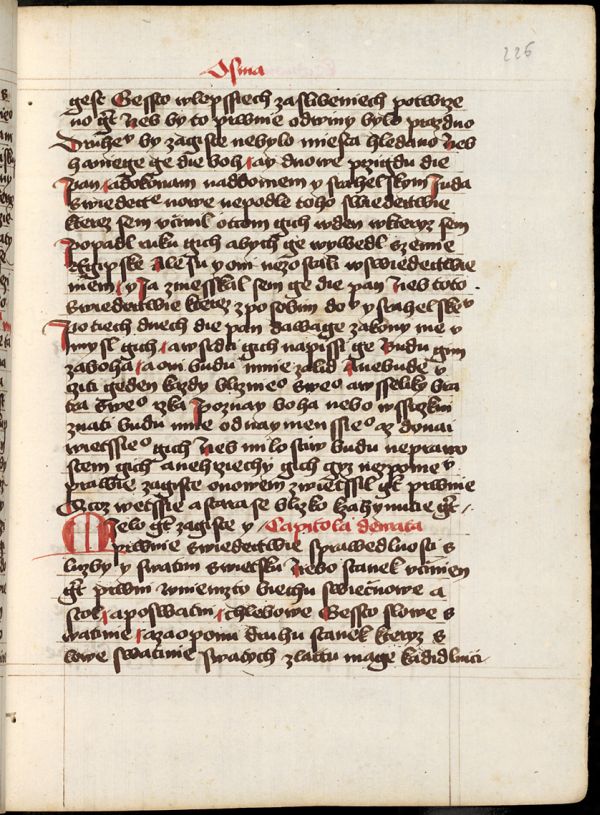 226
Osma
gest Gessto wlepssiech zaslibeniech potwrze
no gt Neb by to prwnie odwiny bylo prazdno
Druheº by zagiste nebylo miesta hledano Neb
haniege ge die boh Ay dnowe przigdu die
Pan A dokonam naddomem yzrahelskym Juda
swiedectwie nowe nepodle toho swiedectwie
kterez sem vczinil otcom gich wden wkteryz sem
popadl ruku gich abych ge wywedl zzemie
Egipske Ale su yoni nezostali wswiedectwie
mem y Ja zmesskal sem ge die pan Neb toto
swiedectwie kterez zposobim domu yzrahelskeº
Po tiech dnech die pan dawage zakony me v
mysl gich a wsrdci gich napissi ge Budu gim
zaboha a oni budu mnie zalid A nebude v
cziti geden kazdy bliznieº sweº a wsseliky bra
tra sweº rzka Poznay boha nebo wssiczkni
znati budu mne od naymenssieº az donai
wietssieº gich Neb milostiw budu neprawo
stem gich a nehrziechy gich giz nezpomenu
prawie zagiste onowem zwietssil gt prwnie
Acoz wetssie a stara se blizko kzahynutie gt
Mielo gt zagiste y Capitola dewata
prwnie swiedectwie sprawedlnosti s
luzby y swatini swietsku Nebo stanek vczinen
gt prwni wniemzto biechu swiecznowe a
stol a poswatni chlebowe Gessto slowe s
watinie a za oponu druhu stanek kteryz s
lowe swatinie swatych zlattu mage kadidlnici